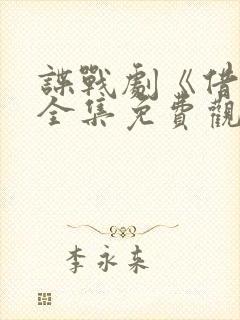 諜戰劇《借
全集免費觀
李永来